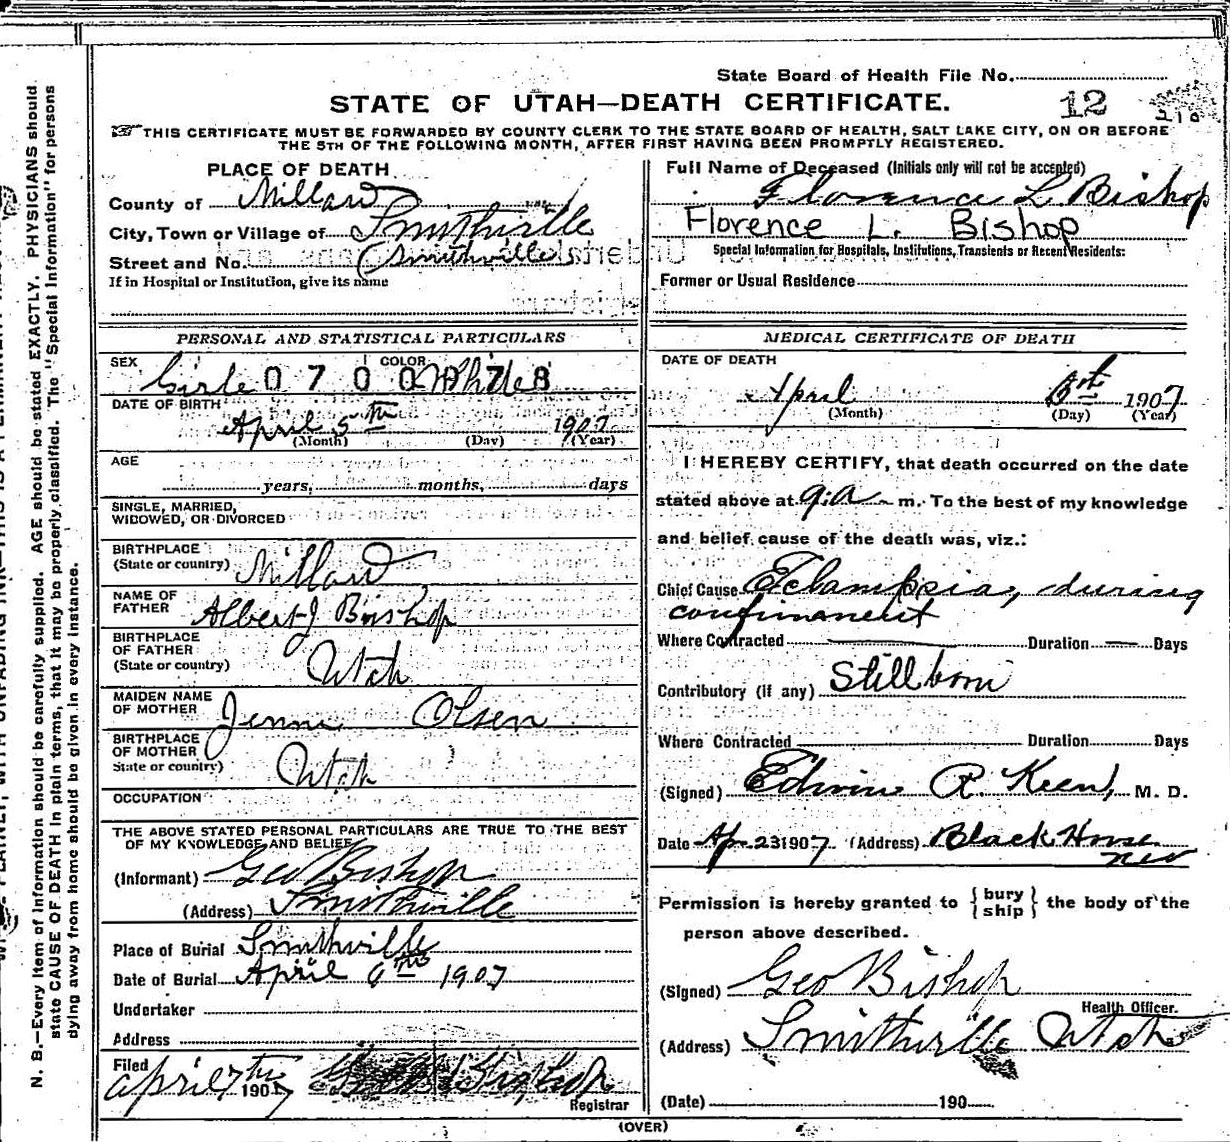 State Board of Health File No.
STATE OF UTAH—DEATH CERTIFICATE.
12
THIS CERTIFICATE MUST BE FORWARDED BY COUNTY CLERK TO THE STATE BOARD OF HEALTH, SALT LAKE CITY, ON OR BEFORE
THE 5TH OF THE FOLLOWING MONTH, AFTER FIRST HAVING BEEN PROMPTLY REGISTERED.
PLACE OF DEATH
County of Millard
City, Town or Village of Smithville
Street and No. (Smithville)
If in Hospital or Institution, give its name
Full Name of Deceased (Initials only will not be accepted)
Florence L Bishop
Florence L. Bishop
Special Information for Hospitals, Institutions, Transients or Recent Residents:
Former or Usual Residence
PERSONAL AND STATISTICAL PARTICULARS
SEX
COLOR
Girle 0 7 0 0 White 7 8
DATE OF BIRTH
April 5th 1907
(Month) (Day) (Year)
AGE
years, months, days
SINGLE, MARRIED,
WIDOWED, OR DIVORCED
BIRTHPLACE
(State or country) Millard
NAME OF
FATHER Albert J Bishop
BIRTHPLACE
OF FATHER
(State or country) Utah
MAIDEN NAME
OF MOTHER Jenni Olsen
BIRTHPLACE
OF MOTHER
State or country) Utah
OCCUPATION
THE ABOVE STATED PERSONAL PARTICULARS ARE TRUE TO THE BEST
OF MY KNOWLEDGE AND BELIEF
(Informant) Geo Bishop
(Address) Smithville
Place of Burial Smithville
Date of Burial April 6th 1907
Undertaker
Address
Filed
April 7th 1907 Bishop
Registrar
MEDICAL CERTIFICATE OF DEATH
DATE OF DEATH
April 6th 1907
(Month) (Day) (Year)
I HEREBY CERTIFY, that death occurred on the date
stated above at 9. a m. To the best of my knowledge
and belief cause of the death was, viz.:
Chief Cause Eclampsia, during
confinement
Where Contracted Duration Days
Contributory (if any) Stillborn
Where Contracted Duration Days
(Signed) Edwin R. Keen, M. D.
Date Ap 23 1907. (Address) Black Horse
Nev
Permission is hereby granted to {bury
ship} the body of the
person above described.
(Signed) Geo Bishop
Health Officer.
(Address) Smithville Utah
(Date) 190
(OVER)
N. B.—Every item of information should be carefully supplied. AGE should be stated EXACTLY. PHYSICIANS should
state CAUSE OF DEATH in plain terms, that it may be properly classified. The "Special Information" for persons
dying away from home should be given in every instance.